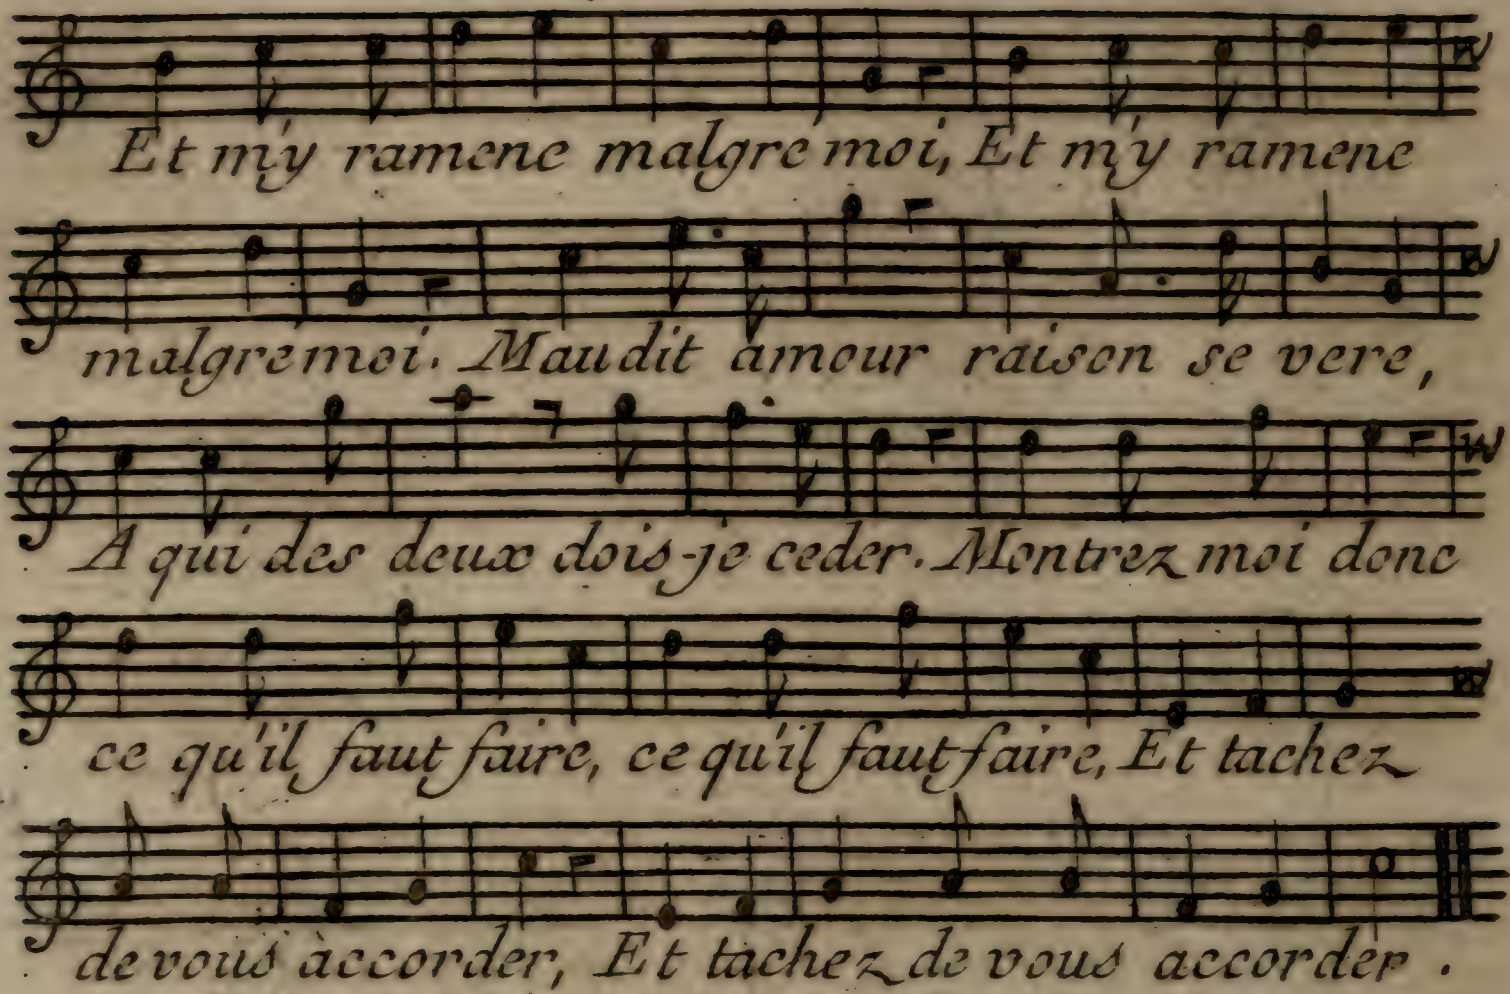 Et m'y ramene malgré moi, Et m'y ramene
malgré moi. Maudit amour raison se vere,
A qui des deux dois-je ceder. Montrez moi donc
ce qu'il faut faire, ce qu'il faut faire, Et tachez
de vous àccorder, Et tachez de vous accorder.